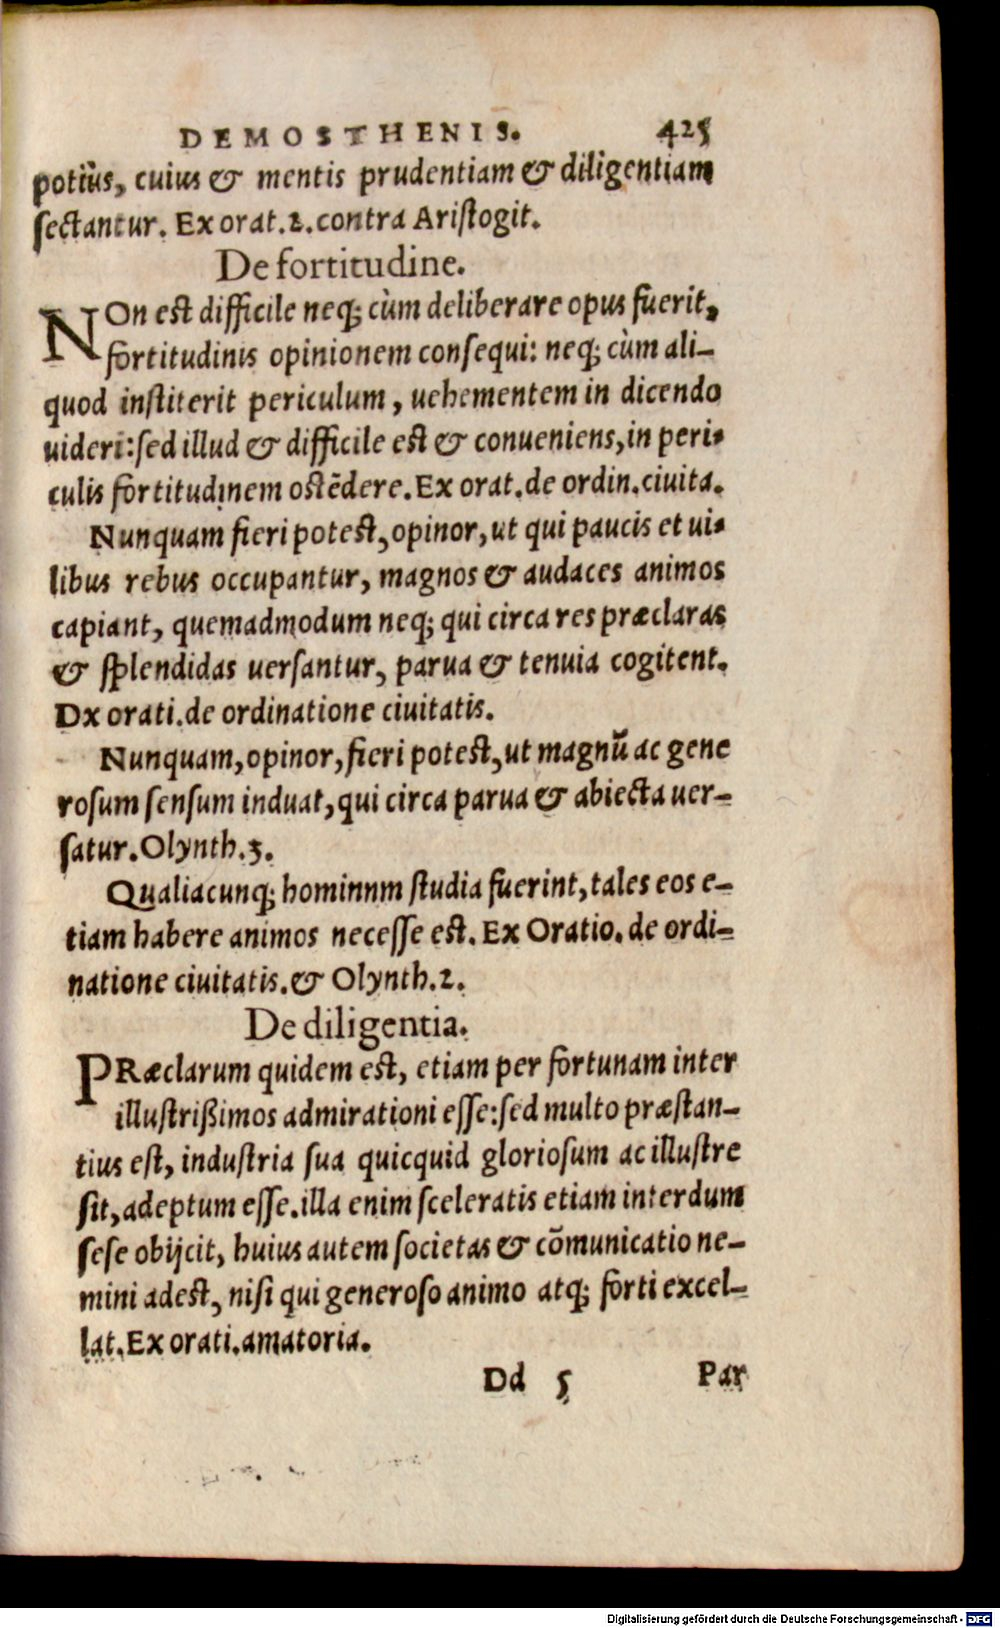 DEMOSTHENIS. 425
potiùs, cuius & mentis prudentiam & diligentiam
sectantur. Ex orat. 2. contra Aristogit.
De fortitudine.
NOn est difficile neq; cùm deliberare opus fuerit,
fortitudinis opinionem consequi: neq; cùm ali-
quod institerit periculum, uehementem in dicendo
uideri: sed illud & difficile est & conueniens, in peri-
culis fortitudinem ostēdere. Ex orat. de ordin. ciuita.
Nunquam fieri potest, opinor, ut qui paucis et ui-
libus rebus occupantur, magnos & audaces animos
capiant, quemadmodum neq; qui circa res præclaras
& splendidas uersantur, parua & tenuia cogitent.
Dx orati. de ordinatione ciuitatis.
Nunquam, opinor, fieri potest, ut magnū ac gene
rosum sensum induat, qui circa parua & abiecta uer-
satur. Olynth. 3.
Qualiacunq; hominnm studia fuerint, tales eos e-
tiam habere animos necesse est. Ex Oratio. de ordi-
natione ciuitatis. & Olynth. 2.
De diligentia.
PRæclarum quidem est, etiam per fortunam inter
illustrißimos admirationi esse: sed multo præstan-
tius est, industria sua quicquid gloriosum ac illustre
sit, adeptum esse. illa enim sceleratis etiam interdum
sese obijcit, huius autem societas & cōmunicatio ne-
mini adest, nisi qui generoso animo atq; forti excel-
lat. Ex orati. amatoria.
Dd 5 Par
Digitalisierung gefördert durch die Deutsche Forschungsgemeinschaft - DFG